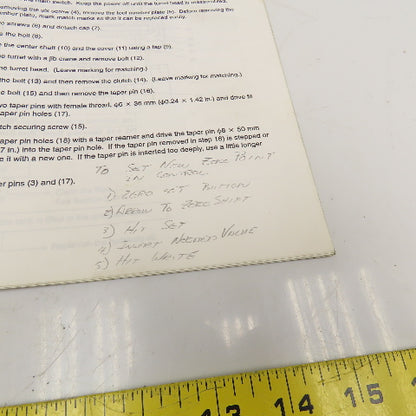 main switch. Keep the power off until the turret head is
removing the six screw (4), remove the tool number plate (5). Before removing the
number plate, make match marks so that it can be replaced easily.
screws (6) and detach cap (7).
the bolt (8).
the center shaft (10) and the cover (11) using a tap (9).
the turret with a jib crane and remove bolt (12).
the turret head. (Leave marking for matching.)
the bolt (13) and then remove the clutch (14). (Leave marking for matching.)
the bolt (15) and then remove the taper pin (16).
two taper pins with female thread, φ6 × 36 mm (φ0.24 × 1.42 in.) and drive
taper pin holes (17).
securing screw (15).
taper pin holes (18) with a taper reamer and drive the taper pin φ8 × 50 mm
in.) into the taper pin hole. If the pin removed in step 16) is stepped or
it with a new one. If the taper pin is inserted too deeply, use a little longer
pins (3) and (17).
TO SET NEW ZERO POINT
IN CONTROL
1) ZERO SET BUTTON
2) ARROW TO ZERO SHIFT
3) HIT SET
4) INSERT NEEDED VALUE
5) HIT WRITE
2 3 13 14 15